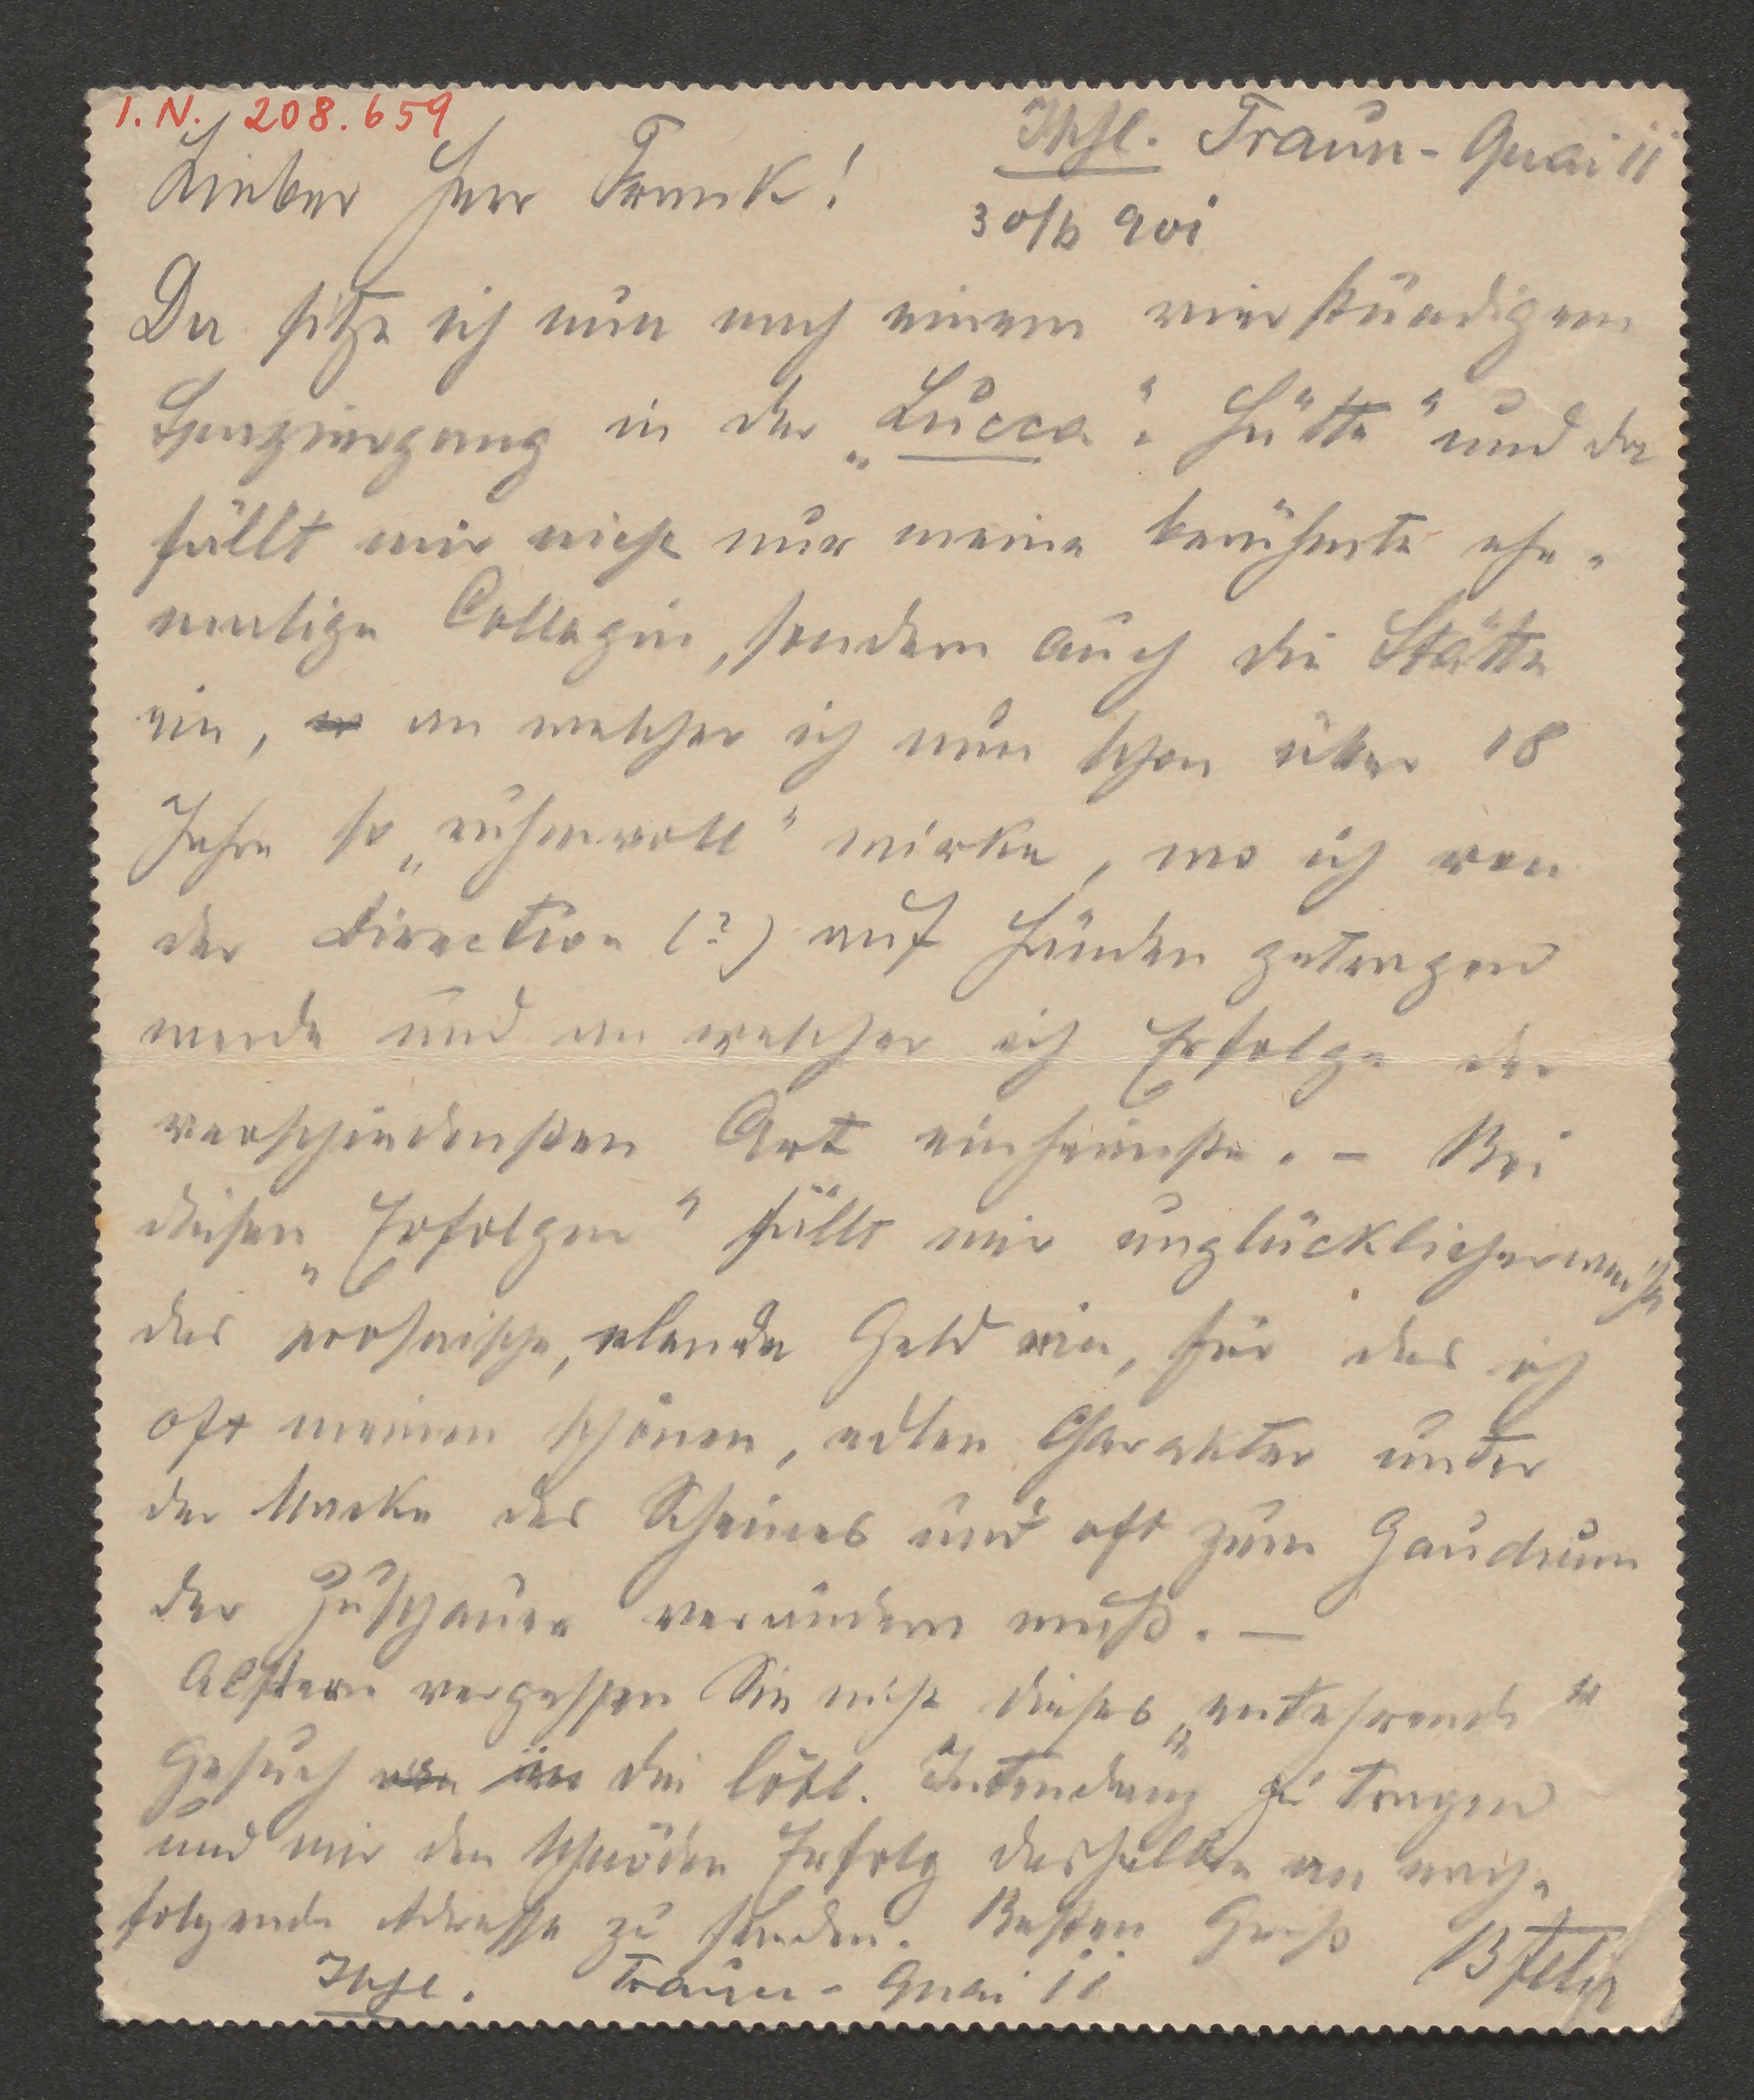 I.N. 208.659
Ischl. Traun-Quai 11
Lieber Herr Frank!
30/6 901
Da sitze ich nun nach einem vierstündigen
Spaziergang in der „Lucca"-Hütte" und da
fällt mir nicht nur meine berühmte ehe-
malige Collegin, sondern auch die Stätte
ein, an welcher ich nun schon über 18
Jahre so „ruhmvoll" wirke, wo ich von
der Direction (?) auf Händen getragen
werde und an welcher ich Erfolge der
verschiedensten Art einheimste. – Bei
diesen „Erfolgen" fällt mir unglücklicherweise
das prosaische, elende Geld ein, für das ich
oft meinen schönen, edlen Charakter unter
der Maske des Scheines und oft zum Gaudium
der Zuschauer verändern muß. –
Alstern vergessen Sie nicht dieses „entehrende"
Gesuch in die löbl. Intendanz zu tragen
und mir den schnöden Erfolg desselben an nach-
folgende Adresse zu senden. Besten Gruß
Ischl. Traun-Quai 11